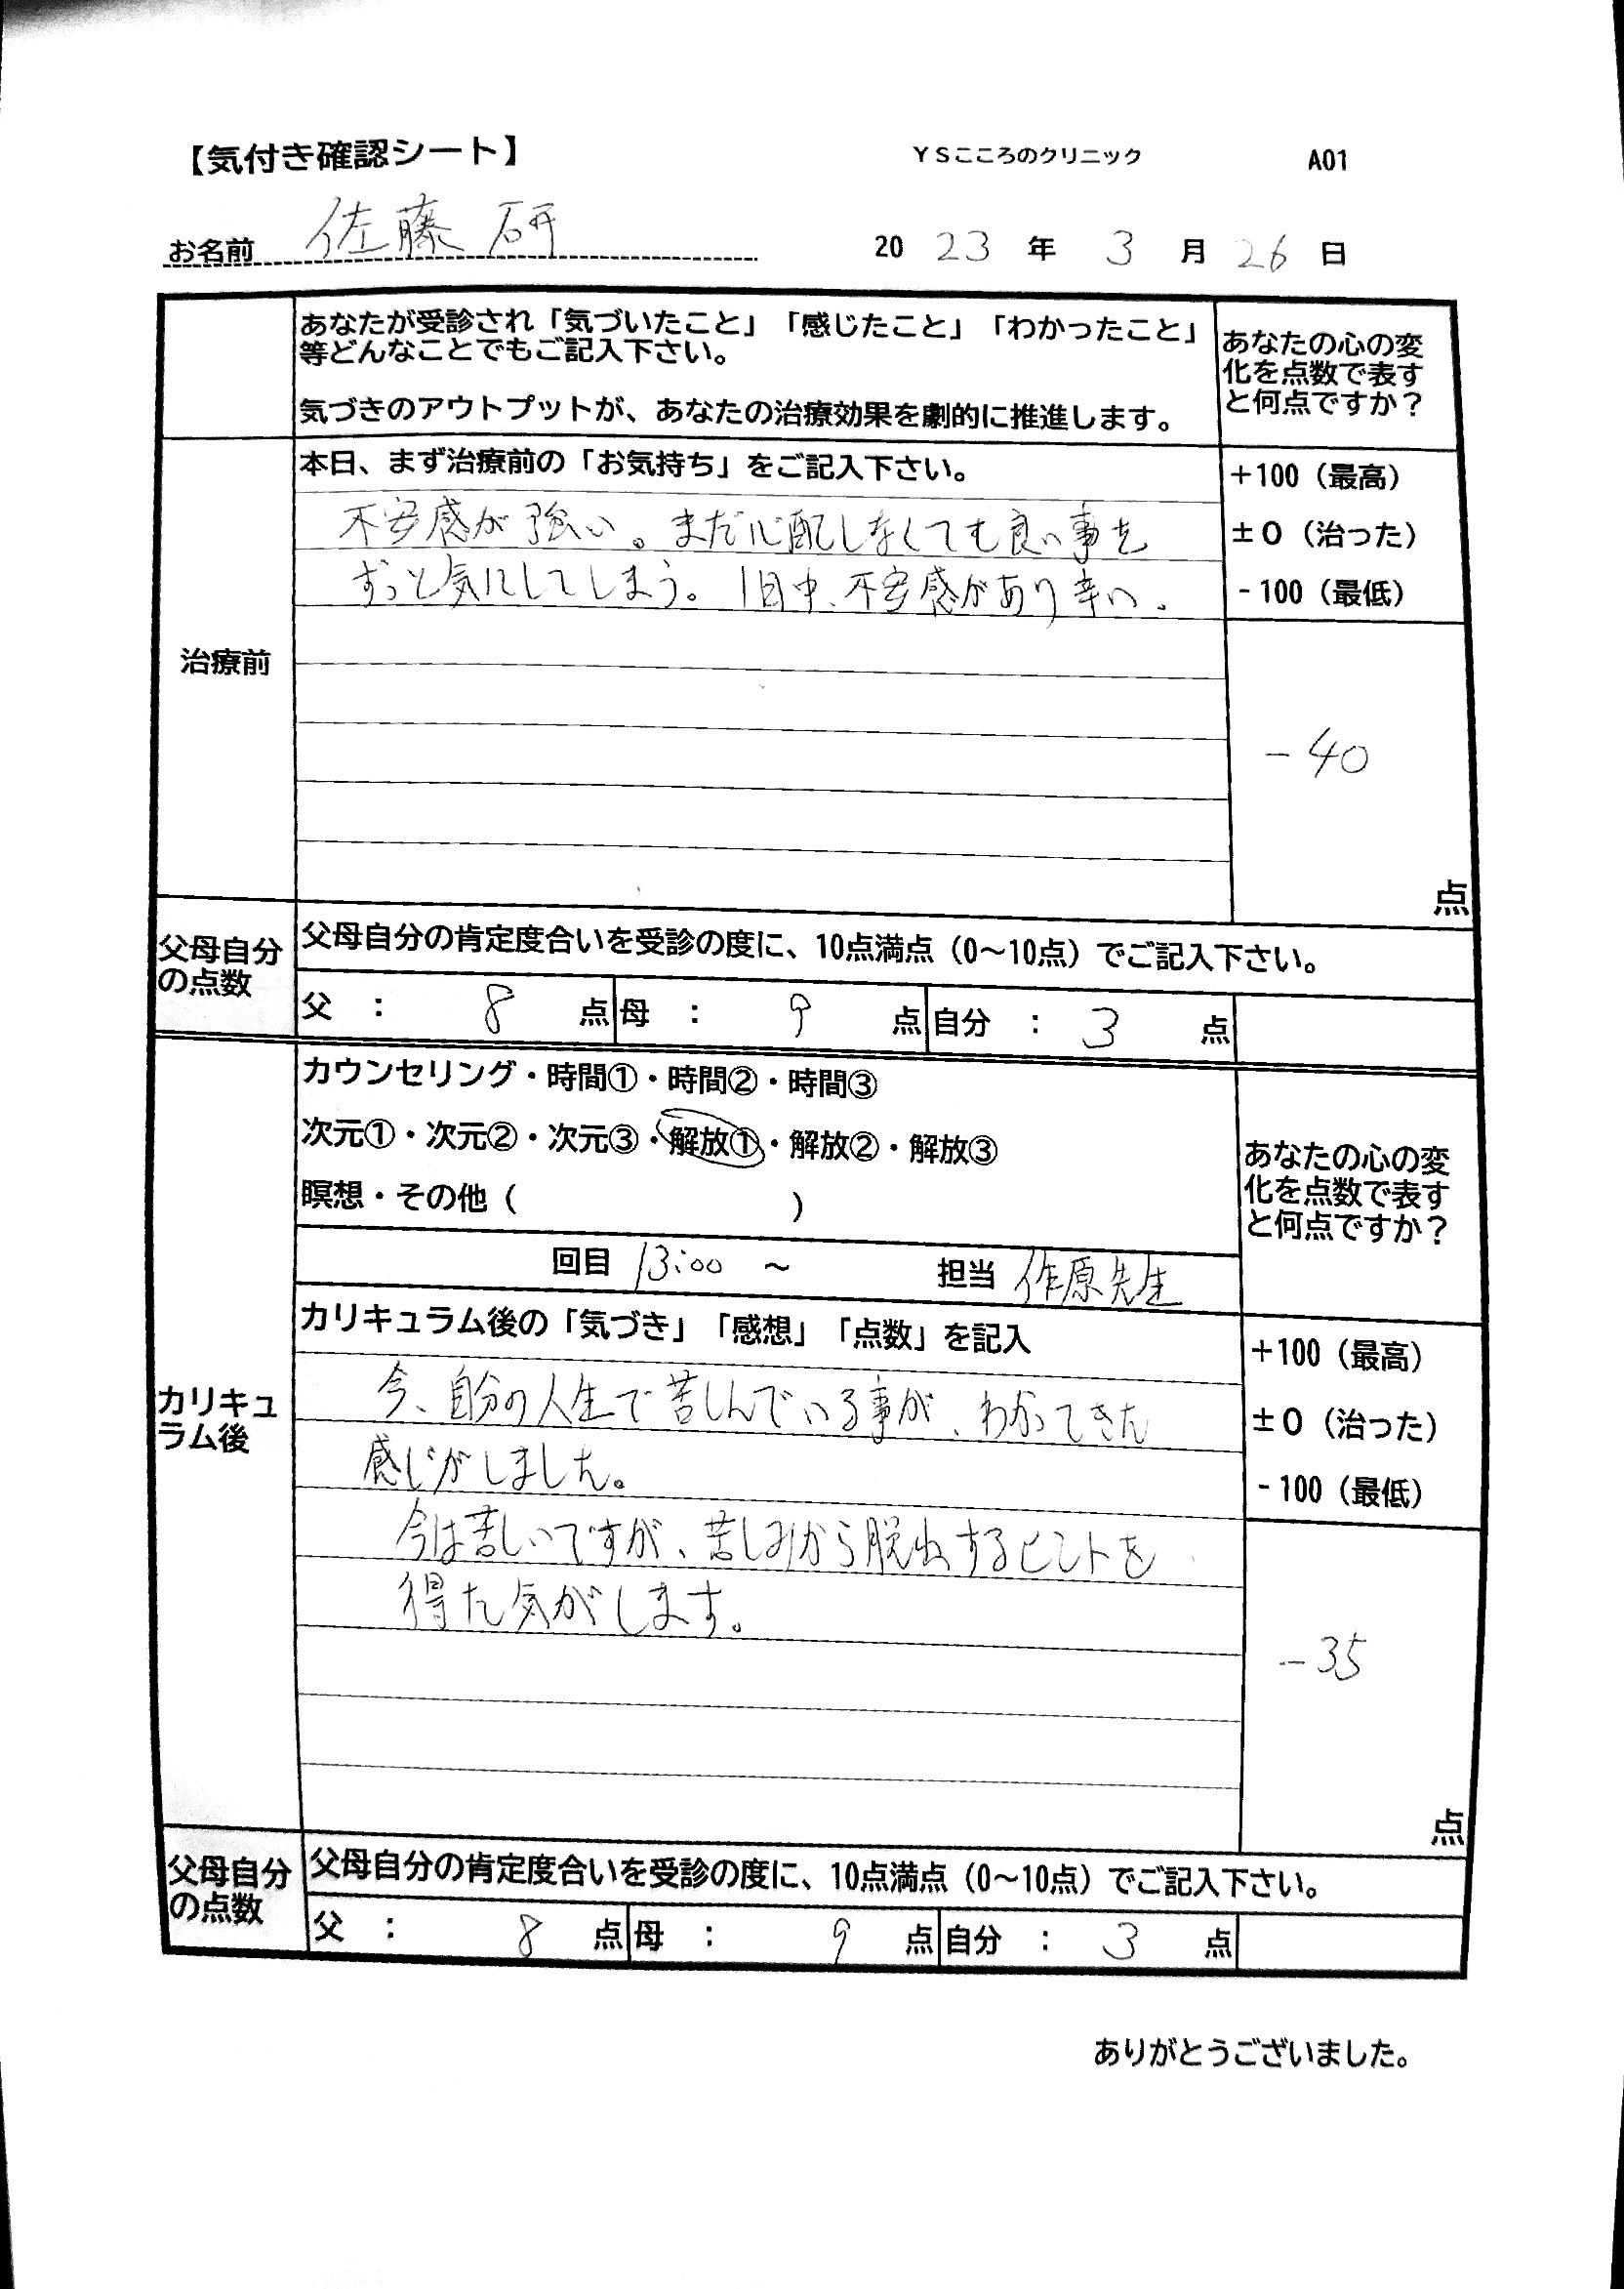 【気付き確認シート】 YSこころのクリニック A01
お名前 佐藤 研 2023年3月26日
あなたが受診され「気づいたこと」「感じたこと」「わかったこと」
等どんなことでもご記入下さい。
気づきのアウトプットが、あなたの治療効果を劇的に推進します。
あなたの心の変
化を点数で表す
と何点ですか？
治療前
本日、まず治療前の「お気持ち」をご記入下さい。
不安感が強い。まだ心配しなくても良い事を
ずっと気にしてしまう。1日中、不安感があり辛い。
+100（最高）
±0（治った）
-100（最低）
-40
点
父母自分
の点数
父母自分の肯定度合いを受診の度に、10点満点（0～10点）でご記入下さい。
父 ： 8 点 母 ： 9 点 自分 ： 3 点
カリキュ
ラム後
カウンセリング・時間①・時間②・時間③
次元①・次元②・次元③・解放①・解放②・解放③
瞑想・その他（ ）
あなたの心の変
化を点数で表す
と何点ですか？
回目 13:00 ～ 担当 作原先生
カリキュラム後の「気づき」「感想」「点数」を記入
今、自分の人生で苦しんでいる事が、わかってきた
感じがしました。
今は苦しいですが、苦しみから脱出するヒントを
得た気がします。
+100（最高）
±0（治った）
-100（最低）
-35
点
父母自分
の点数
父母自分の肯定度合いを受診の度に、10点満点（0～10点）でご記入下さい。
父 ： 8 点 母 ： 9 点 自分 ： 3 点
ありがとうございました。